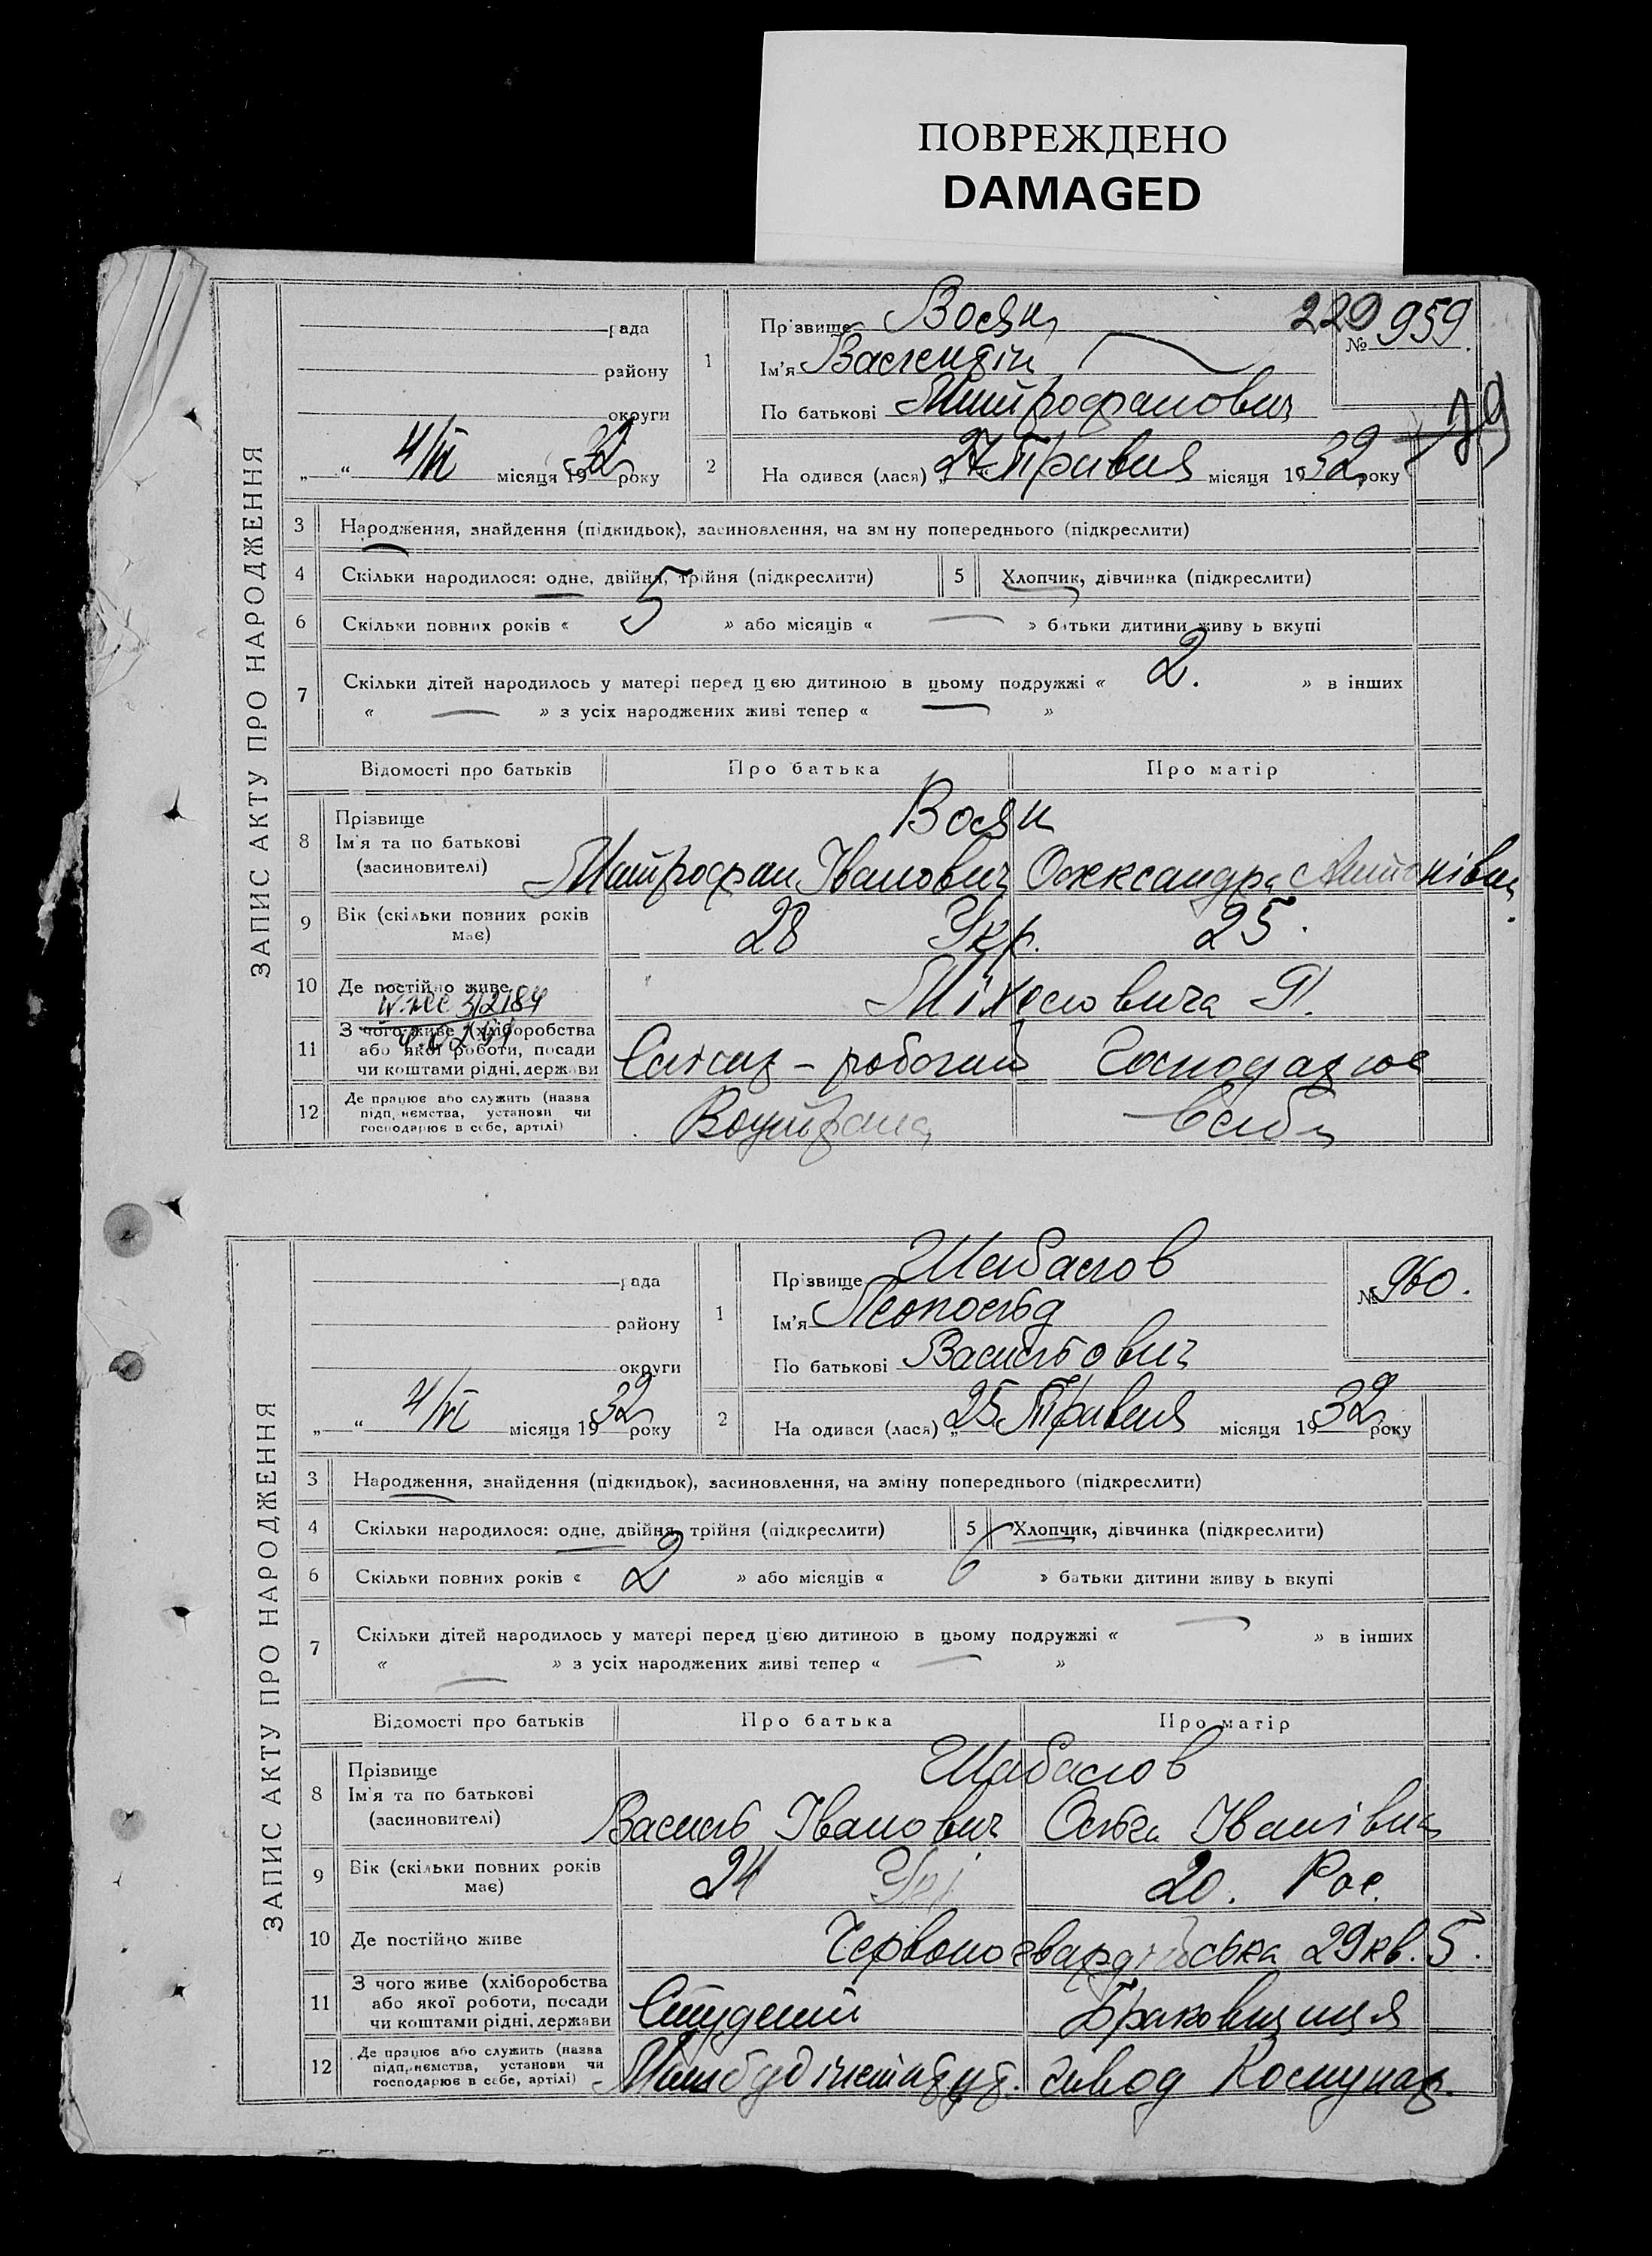 ПОВРЕЖДЕНО
DAMAGED
ЗАПИС АКТУ ПРО НАРОДЖЕННЯ
рада
району
округи
„ “ 4/VI місяця 1932 року
1 Прізвище Восян
Ім'я Валентін
По батькові Митрофанович
229
№ 959.
79
2 На одився (лася) „27 Травня місяця 1932 року
3 Народження, знайдення (підкидьок), засиновлення, на зміну попереднього (підкреслити)
4 Скільки народилося: одне, двійня, трійня (підкреслити) 5 Хлопчик, дівчинка (підкреслити)
6 Скільки повних років « 5 » або місяців « — » батьки дитини живу ь вкупі
7 Скільки дітей народилось у матері перед цією дитиною в цьому подружжі « 2. » в інших
« — » з усіх народжених живі тепер « — »
Відомості про батьків Про батька Про матір
8 Прізвище
Ім'я та по батькові
(засиновителі)
Восян
Митрофан Іванович Олександра Антонівна
9 Вік (скільки повних років має) 28 Укр. 25.
10 Де постійно живе
11 З чого живе (хліборобства
або якої роботи, посади
чи коштами рідні, держави
Слюсар – робочий Господарює
12 Де працює або служить (назва
підп, нємства, установи чи
господарює в себе, артілі)
ЗАПИС АКТУ ПРО НАРОДЖЕННЯ
рада
району
округи
„ “ 4/VI місяця 1932 року
1 Прізвище Шабалов
Ім'я Леопольд
По батькові Васильович
№ 960.
2 На одився (лася) „25 Травня місяця 1932 року
3 Народження, знайдення (підкидьок), засиновлення, на зміну попереднього (підкреслити)
4 Скільки народилося: одне, двійня, трійня (підкреслити) 5 Хлопчик, дівчинка (підкреслити)
6 Скільки повних років « 2 » або місяців « 6 » батьки дитини живу ь вкупі
7 Скільки дітей народилось у матері перед цією дитиною в цьому подружжі « — » в інших
« — » з усіх народжених живі тепер « — »
Відомості про батьків Про батька Про матір
8 Прізвище
Ім'я та по батькові
(засиновителі)
Шабалов
Василь Іванович Ольга Іванівна
9 Вік (скільки повних років має) 24 Укр 20. Рос.
10 Де постійно живе Червоногвардійська 29 кв. 5.
11 З чого живе (хліборобства
або якої роботи, посади
чи коштами рідні, держави
Студент Браковщиця
12 Де працює або служить (назва
підп, нємства, установи чи
господарює в себе, артілі)
Машбудінститут. завод Комунар.